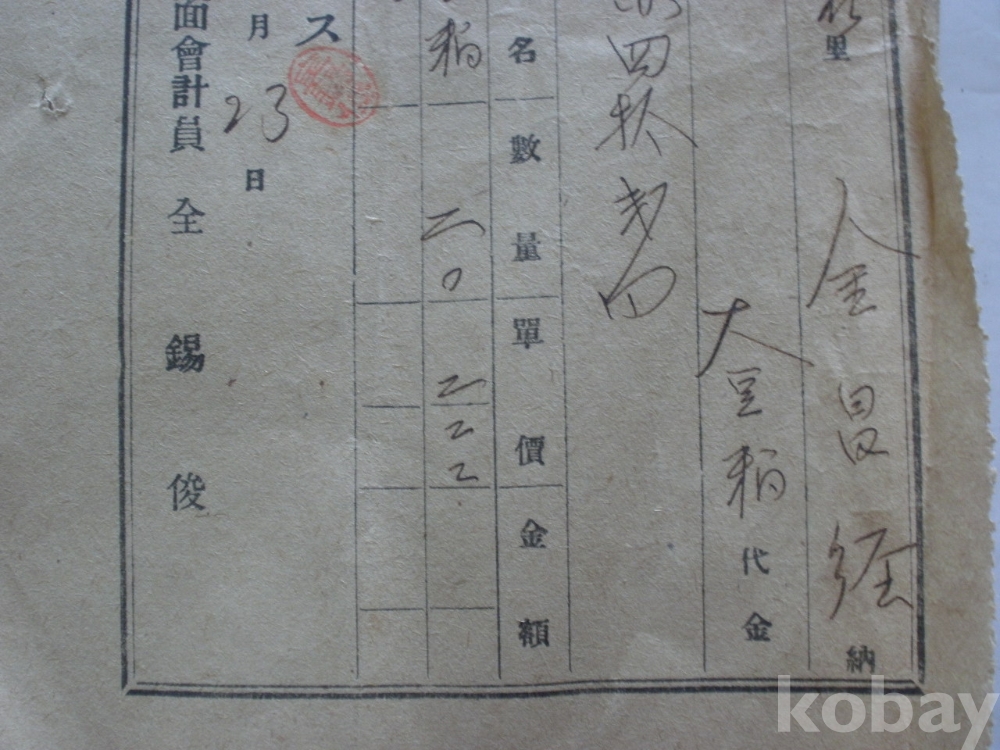 里 金昌經 納
大豆粕代金
四拾
名 數量 單價 金額
粕 二〇 二二二
ス
月 23 日
面會計員 全錫俊
kobay